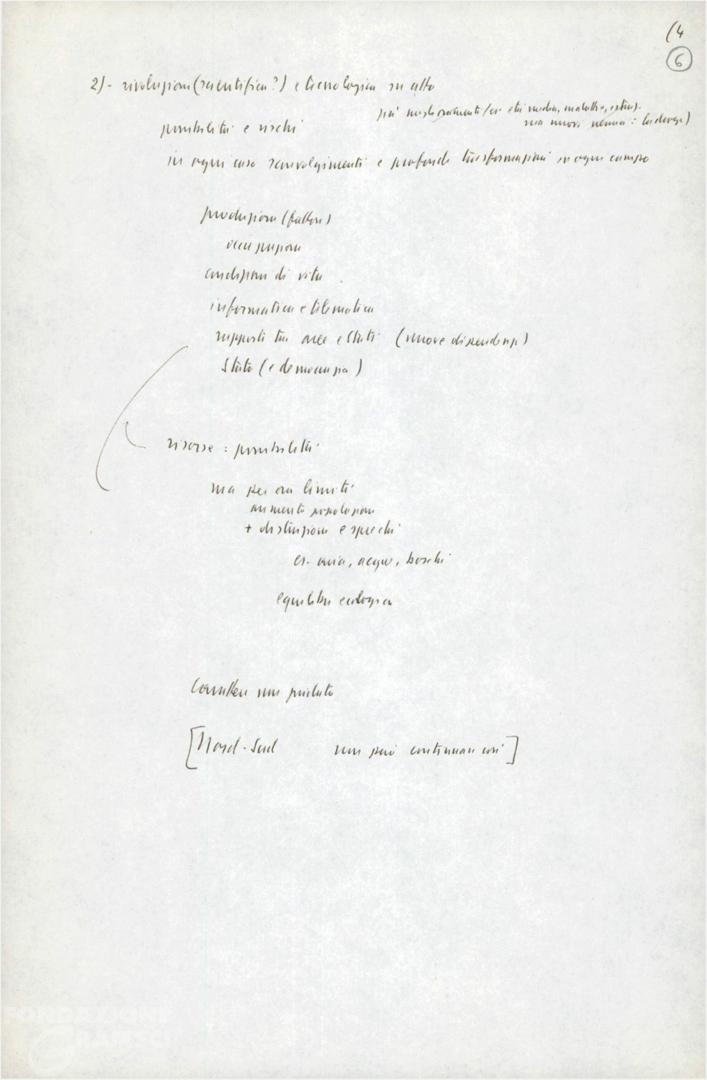 (4
6
2)- rivoluzione (scientifica?) e tecnologica in atto
più miglioramenti (es. età media, malattie,
ma nuovi nemici: la droga)
possibilità e rischi
in ogni caso sconvolgimenti e profonde trasformazioni in ogni campo
produzione (fattori)
occupazione
condizioni di vita
informatica e telematica
rapporti tra aree e Stati (nuove dipendenze)
Stato (e democrazia)
risorse: possibilità
ma per ora limiti
aumento popolazione
+ distruzioni e sprechi
es. aria, acqua, boschi
equilibri ecologici
Carattere non
[Nord-Sud non può continuare così]
FONDAZIONE
GRAMSCI